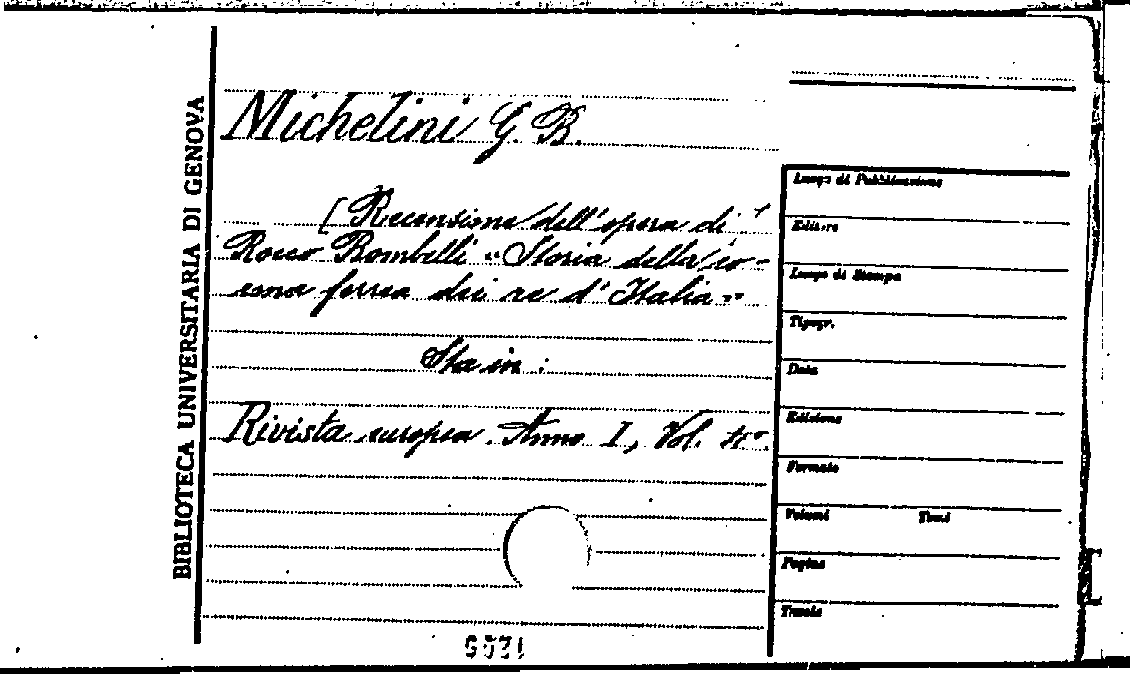 BIBLIOTECA UNIVERSITARIA DI GENOVA
Michelini G. B.
[Recensione dell'opera di
Rocco Bombelli "Storia della co-
rona ferrea dei re d'Italia"
Sta in:
Rivista europea. Anno I, Vol.
Luogo di Pubblicazione
Editore
Luogo di Stampa
Tipogr.
Data
Edizione
Formato
Volumi Tomi
Pagine
Tavole